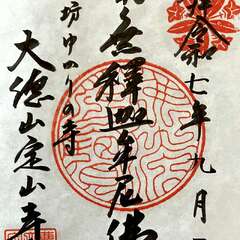 拝 令和七年九月
南無釋迦牟尼佛
坊ゆかりの寺
大徳山定山寺